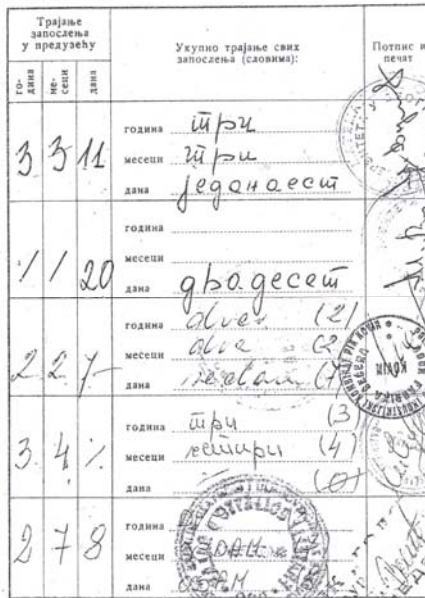 Трајање
запослења
у предузећу
Укупно трајање свих
запослења (словима):
Потпис и
печат
го-
дина
ме-
сеци
дана
3 3 11
година три
месеци три
дана једанаест
/ / 20
година
месеци
дана двадесет
2 2 7
година dve (2)
месеци dva (2
дана sedam (7)
3 4 /.
година три (3
месеци четири (4)
дана (0)
2 7 8
година
месеци
дана OSAM
KOVIN